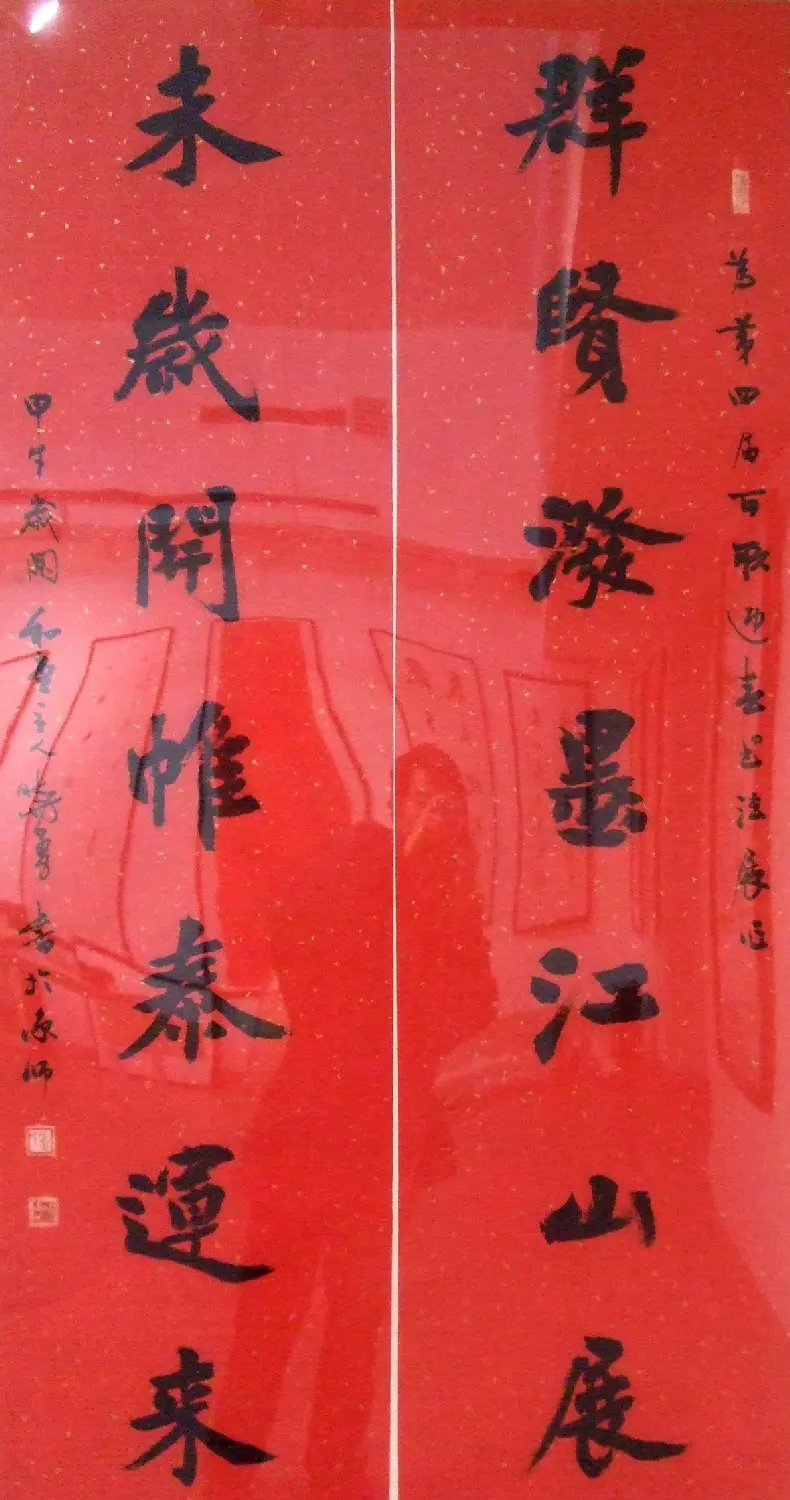 為第四屆百聯迎春书法展作
群賢潑墨江山展
未歲開帷泰運來
甲午歲闌和 主人 勇書於京師